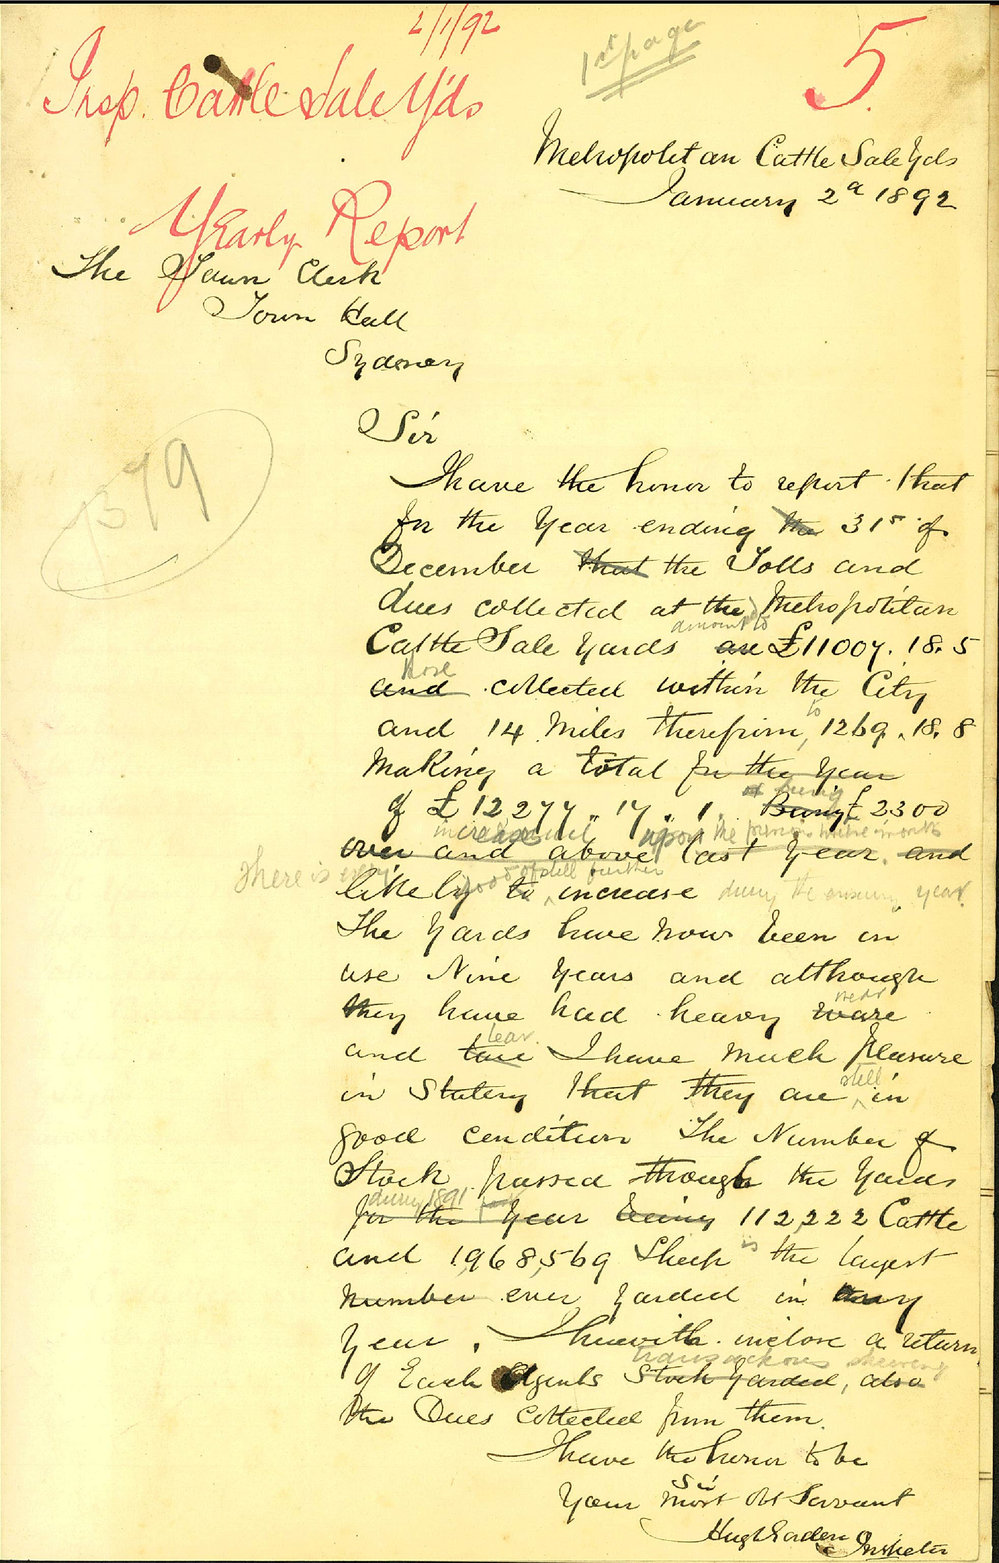 2/1/92
1st page
5
Insp. Cattle Sale Yds
Metropolitan Cattle Sale Yds
January 2d 1892
Yearly Report
The Town Clerk
Town Hall
Sydney
379
Sir
I have the honor to report that
for the Year ending the 31st of
December that the Tolls and
dues collected at the Metropolitan
amount to
Cattle Sale Yards are £11007. 18. 5
those
and collected within the City
to
and 14 Miles therefrom, 1269. 18. 8
Making a total for the Year
being
of £12,277,, 17,, 1. Being £2300
increase upon the previous twelve months
over and above last Year. and
There is every
still further
likely to increase during the ensuing year.
The Yards have now been in
use Nine Years and although
wear
they have had heavy ware
tear
and tare I have much pleasure
still
in Stating that they are in
good condition The Number of
Stock passed through the Yards
during 1891
for the Year being 112,222 Cattle
is
and 1,968,569 Sheep the largest
number ever yarded in any
Year. I herewith inclose a return
transactions shewing
of Each Agents Stock Yarded, also
the Dues collected from them.
I have the honor to be
Sir
Your Most Obt Servant
Hugh Inspector